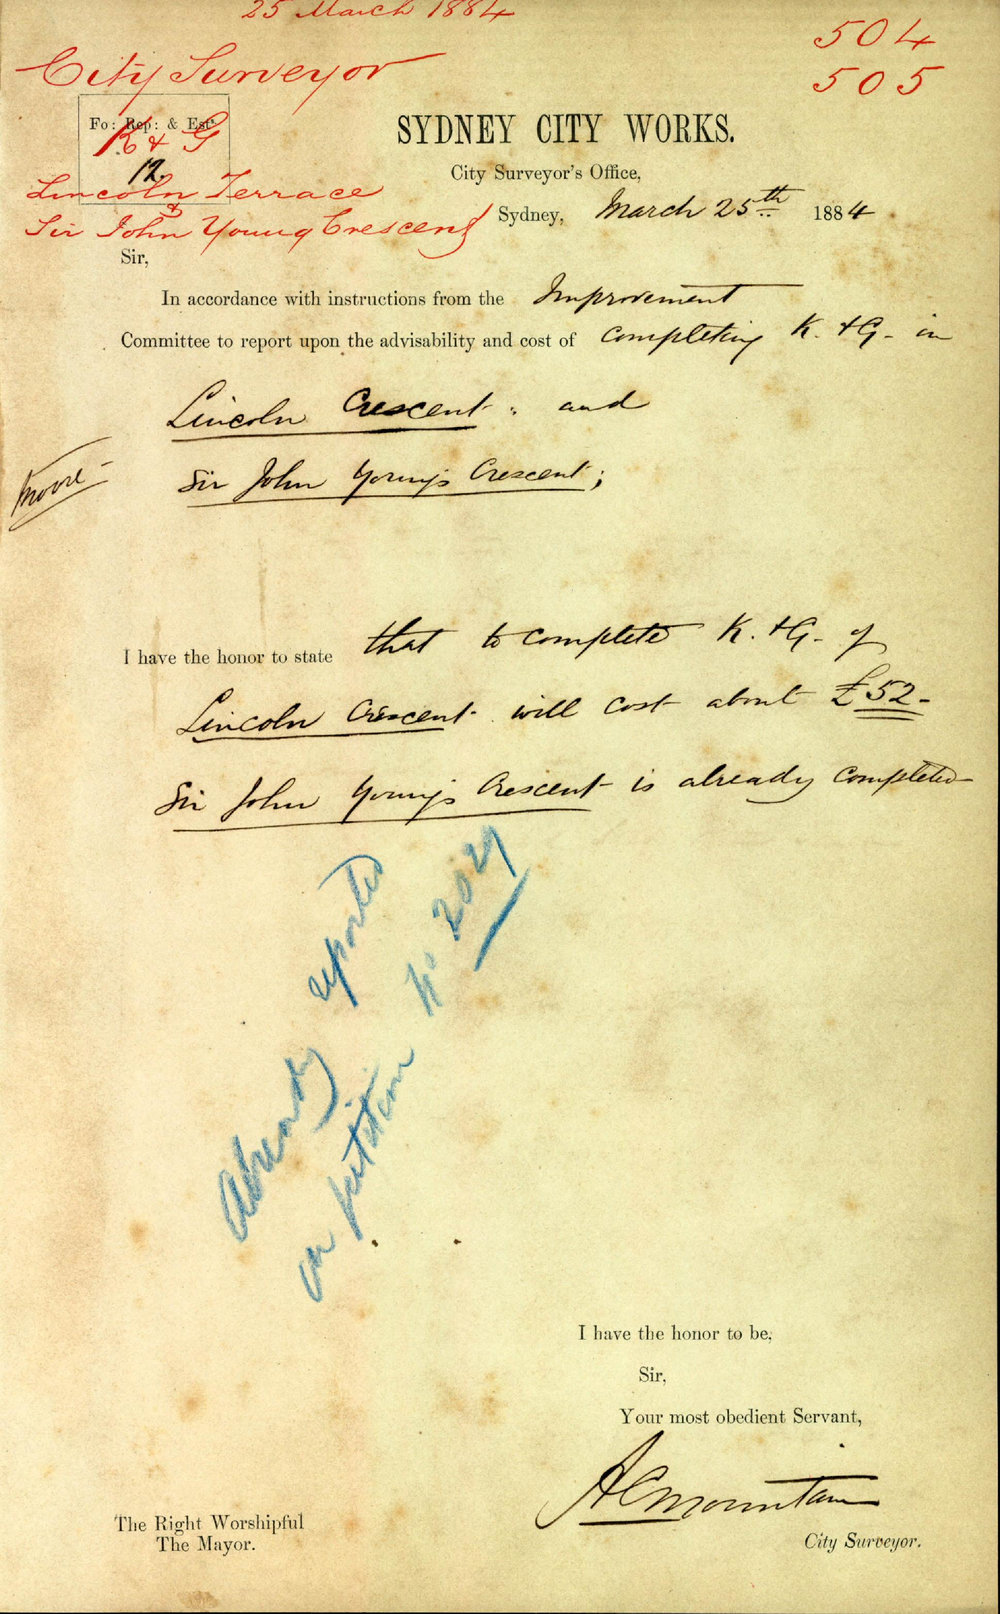 25 March 1884
504
505
City Surveyor
Fo: Rep: & Est:
K & G
12.
Lincoln Terrace
&
Sir John Young Crescent
SYDNEY CITY WORKS.
City Surveyor's Office,
Sydney, March 25th 1884
Sir,
In accordance with instructions from the Improvement
Committee to report upon the advisability and cost of completing K. & G. in
Lincoln Crescent: and
Sir John Young's Crescent;
Moore
I have the honor to state that to complete K. & G. of
Lincoln Crescent will cost about £52-
Sir John Young's Crescent is already completed
Already reported
on petition No 2027
I have the honor to be,
Sir,
Your most obedient Servant,
A C Mountain
City Surveyor.
The Right Worshipful
The Mayor.